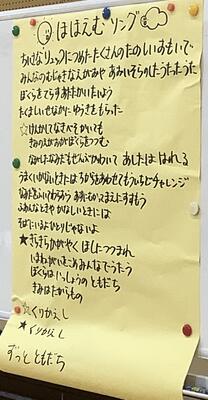 ほほえむソング
ちいさなリュックにつめたたくさんのたのしいおもいで
みんなのむじゃきなえがおや あおいそらのしたうたったうた
ぼくらをてらすあたたかいたいよう
たくましいせなかに ゆうきをもらった
☆けんかしてなきべそかいても
きみのえがおがぼくらをつつむ
なみだしたなみだもぜんぶかわいて あしたは はれる
うまくいかないときは ちからをあわせてもういちどチャレンジ
なみだをふいてわらおう あきらめずにまえにすすもう
ふあんなときや かなしいときには
そばにいるよひとりじゃないよ
★きらきらかがやく ほしにつつまれ
いまみんなでうたう
ぼくらはいっしょうの ともだち
きみはたからもの
☆くりかえし
★くりかえし
ずっと ともだち